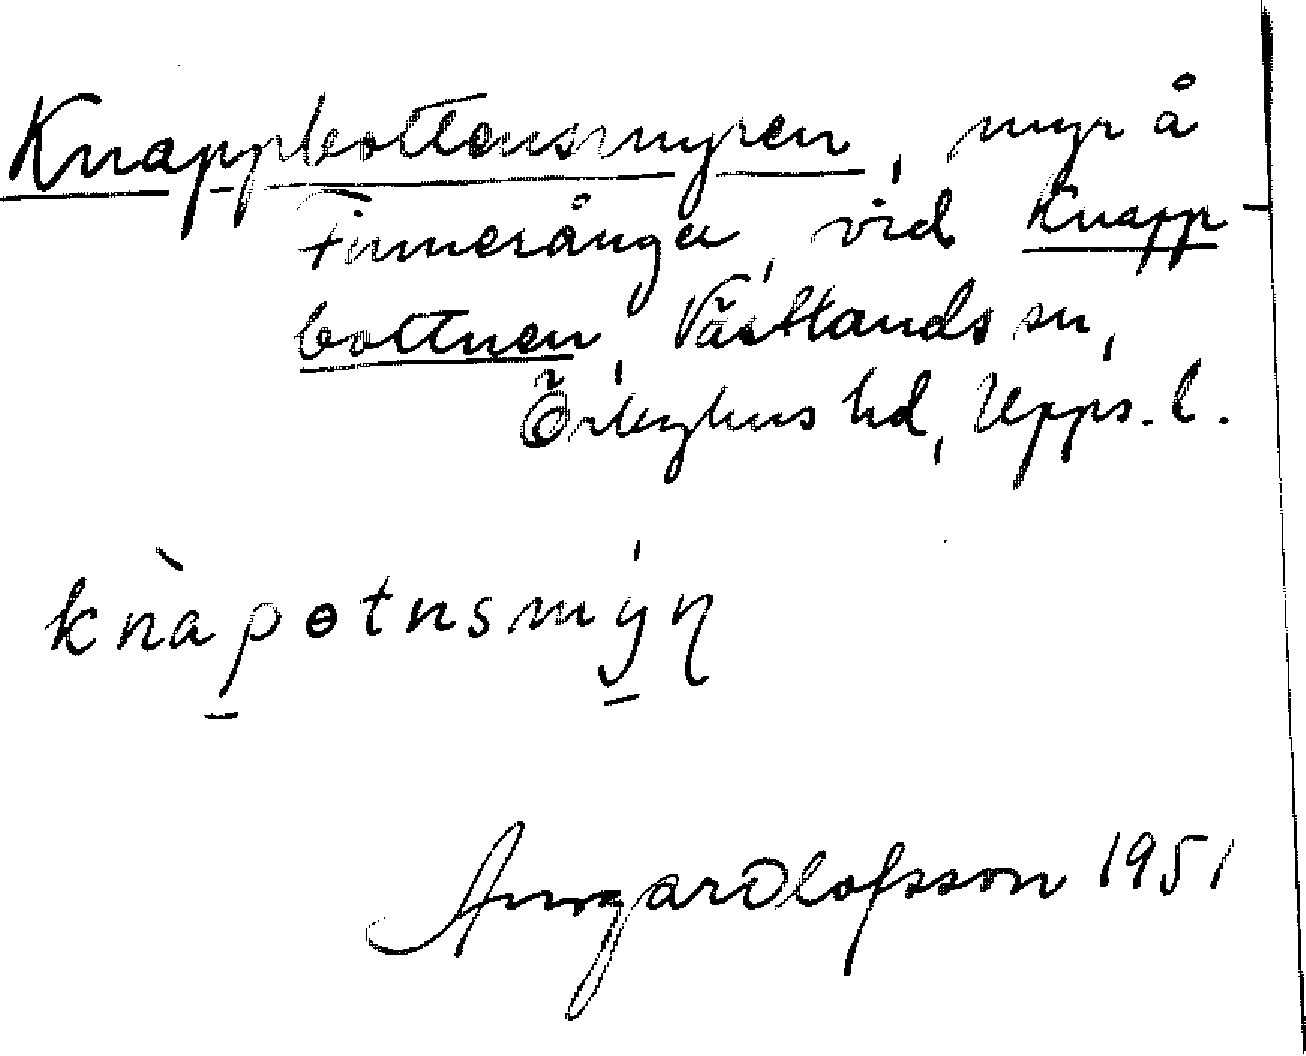 Knappbottensmyren, myr å
Finnerånger, vid Knapp-
bottnen, Västlands sn,
Örbyhus hd, Upps. l.
knàpɵtnsmýn
Ansgar Olofsson 1951